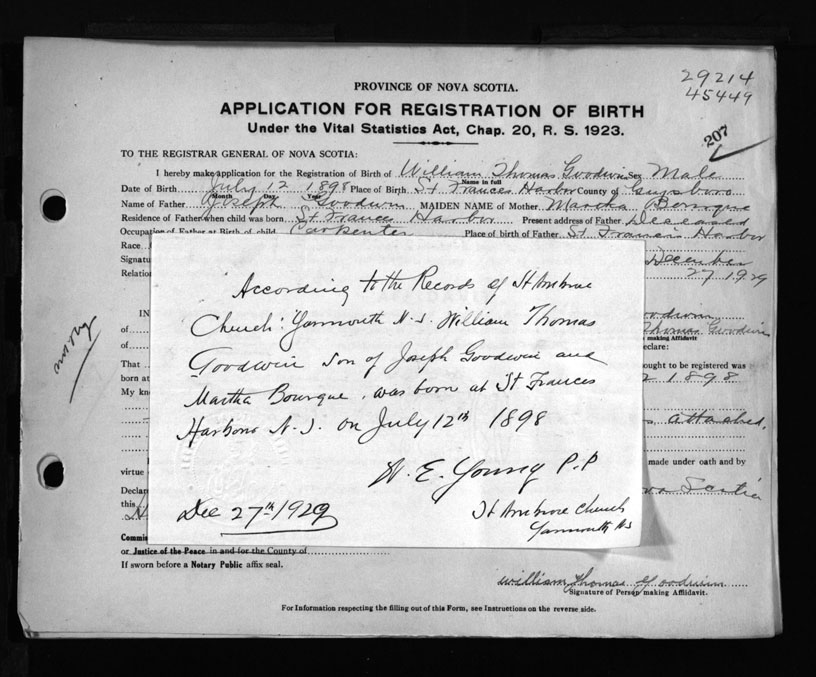 29214
45449
207
PROVINCE OF NOVA SCOTIA.
APPLICATION FOR REGISTRATION OF BIRTH
Under the Vital Statistics Act, Chap. 20, R. S. 1923.
TO THE REGISTRAR GENERAL OF NOVA SCOTIA:
I hereby make application for the Registration of Birth of William Thomas Goodwin Sex Male
Name in full
Date of Birth July 12 1898 Place of Birth St Frances Harbor County of Guysboro
Month Day Year
Name of Father Joseph Goodwin MAIDEN NAME of Mother Martha
Residence of Father when child was born St Frances Harbor Present address of Father Deseased
Occupation of Father at Birth of child Carpenter Place of birth of Father St Francis Harbor
Race
Signatu December
Relation 27 1929
IN
of Thomas Goodwin
making Affidavit
of declare:
That ought to be registered was
born at 1898
My kno
attached.
made under oath and by
virtue
Declara Nova Scotia
this
Commis
or Justice of the Peace in and for the County of
If sworn before a Notary Public affix seal.
William Thomas Goodwin
Signature of Person making Affidavit.
For Information respecting the filling out of this Form, see Instructions on the reverse side.
According to the Records of St Ambrose
Church Yarmouth N.S. William Thomas
Goodwin son of Joseph Goodwin and
Martha Bourque, was born at St Frances
Harbour N.S. on July 12th 1898
W. E. Young P.P
St Ambrose Church
Yarmouth NS
Dec 27th 1929